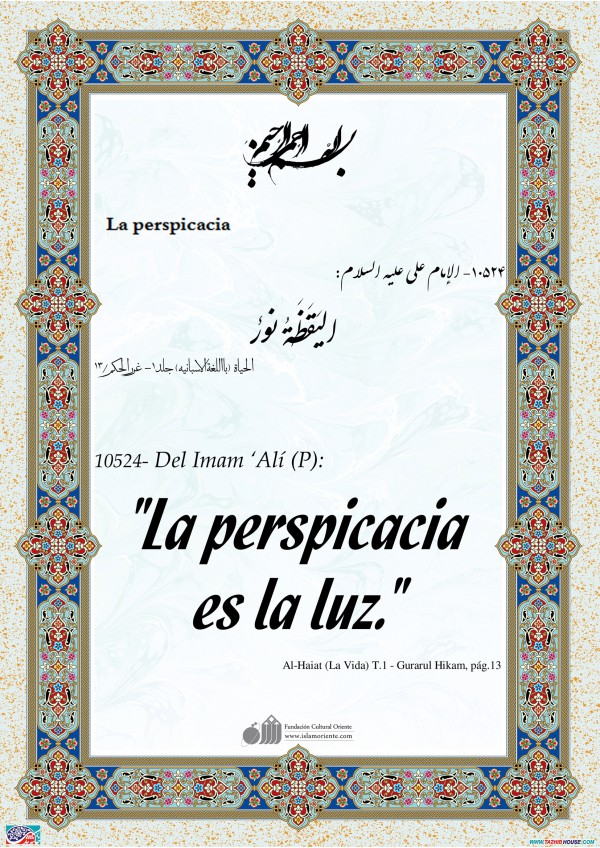 La perspicacia
١٠٥٢٤- الإمام علي عليه السلام:
اليَقَظَةُ نورٌ
الحياة (باللغة الاسبانيه) جلد ١- غررالحكم/١٣
10524- Del Imam ‘Alí (P):
"La perspicacia
es la luz."
Al-Haiat (La Vida) T.1 - Gurarul Hikam, pág.13
Fundación Cultural Oriente
www.islamoriente.com
WWW.TAZHIBHOUSE.COM